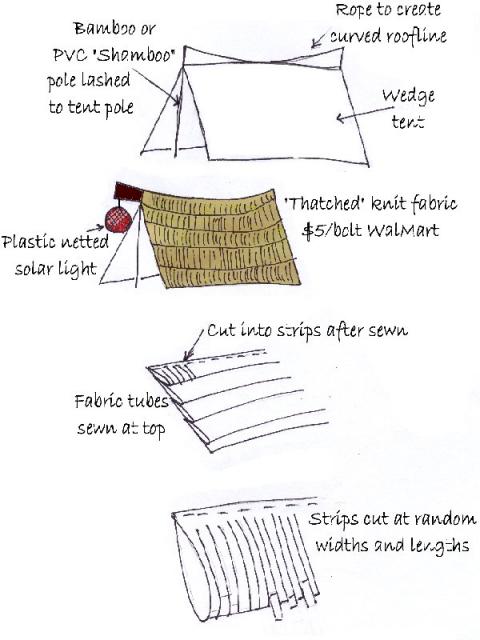 Rope to create
curved roofline
Bamboo or
PVC "Shamboo"
pole lashed
to tent pole
Wedge
tent
"Thatched" knit fabric
$5/bolt WalMart
Plastic netted
solar light
Cut into strips after sewn
Fabric tubes
sewn at top
Strips cut at random
widths and lengths